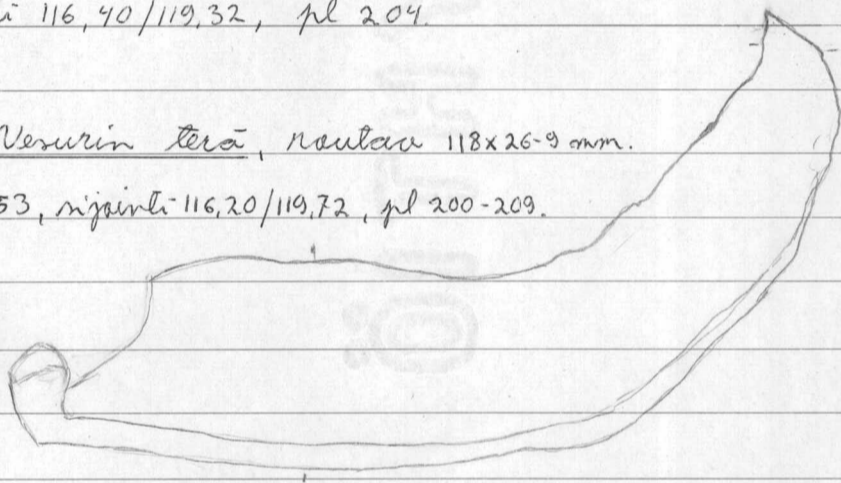 i 116,40/119,32, pl 204.
Vesurin terä, rautaa 118x26-9 mm.
53, sijainti 116,20/119,72, pl 200-209.